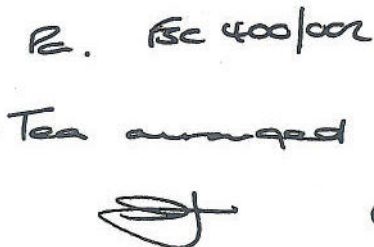 Pa. FSC 400/002
Tea arranged